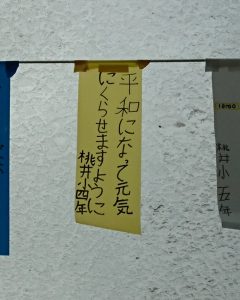 平和になって元気
にくらせますように
桃井小四年
桃井小 五年